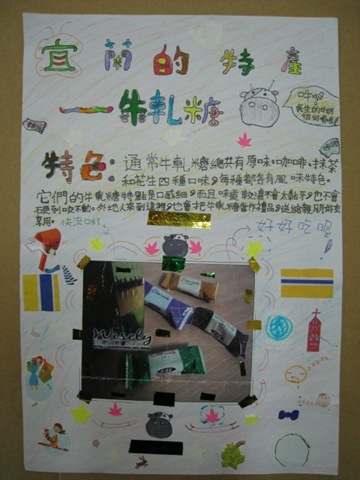 宜蘭的特產
—牛軋糖
哞哞
特色:通常牛軋糖總共有原味,咖啡,抹茶
和花生四種口味,每種都各有風味特色。
它們的牛軋糖特點是口感細,而且味道較濃不會太黏牙,也不會
硬到咬不動。外地人來到這裡,也會把牛軋糖當作禮品,送給親朋好友
享用。
快流口水了
好好吃喔!
Wisely